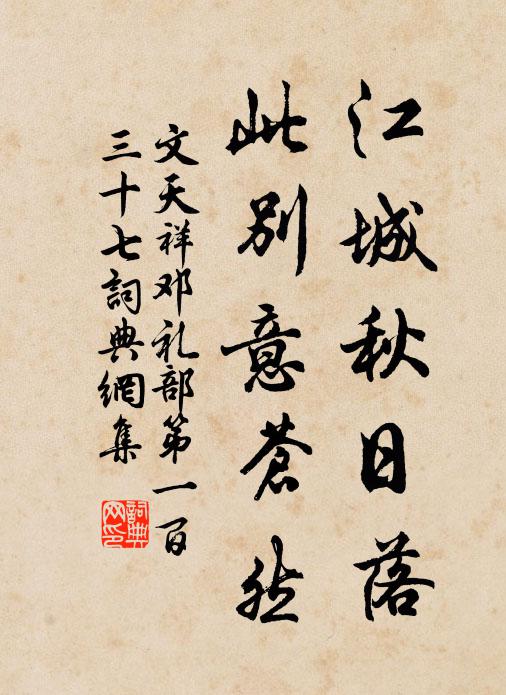 江城秋日落
此別意蒼然
文天祥邓礼部第一百
三十七詞典網集
詞典
网印